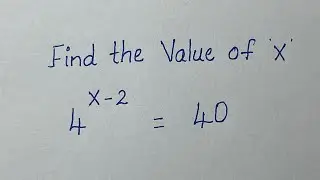 Find the Value of 'x'
4^{x-2} = 40